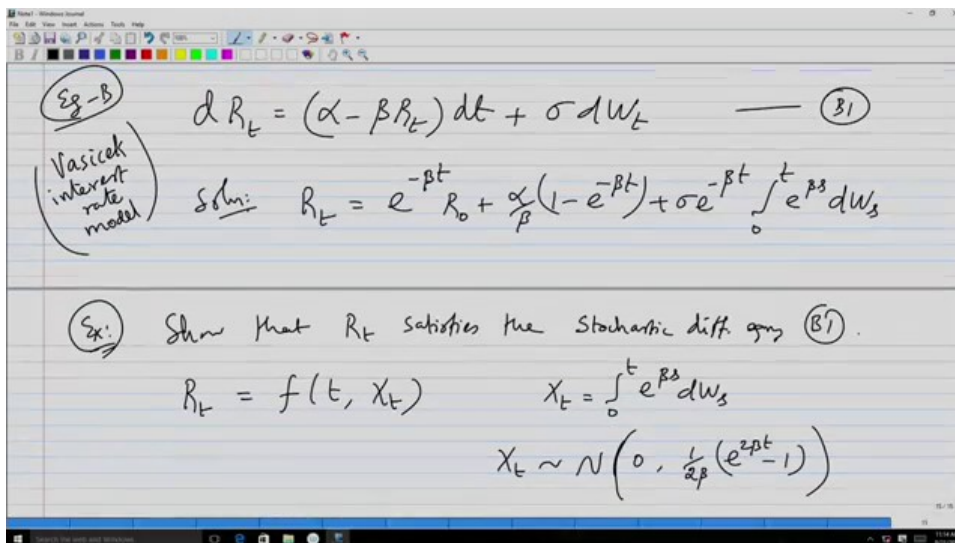 Note1 - Windows Journal
File Edit View Insert Actions Tools Help
Eg-B
dR_t = (α - βR_t) dt + σ dW_t —— (B1)
(Vasicek
interest
rate
model)
Soln: R_t = e^{-βt} R_0 + α/β (1 - e^{-βt}) + σe^{-βt} ∫_0^t e^{βs} dW_s
Ex: Show that R_t satisfies the stochastic diff. eqn (B1).
R_t = f(t, X_t) X_t = ∫_0^t e^{βs} dW_s
X_t ~ N(0, 1/2β (e^{2βt} - 1))
15/15
Search the web and Windows